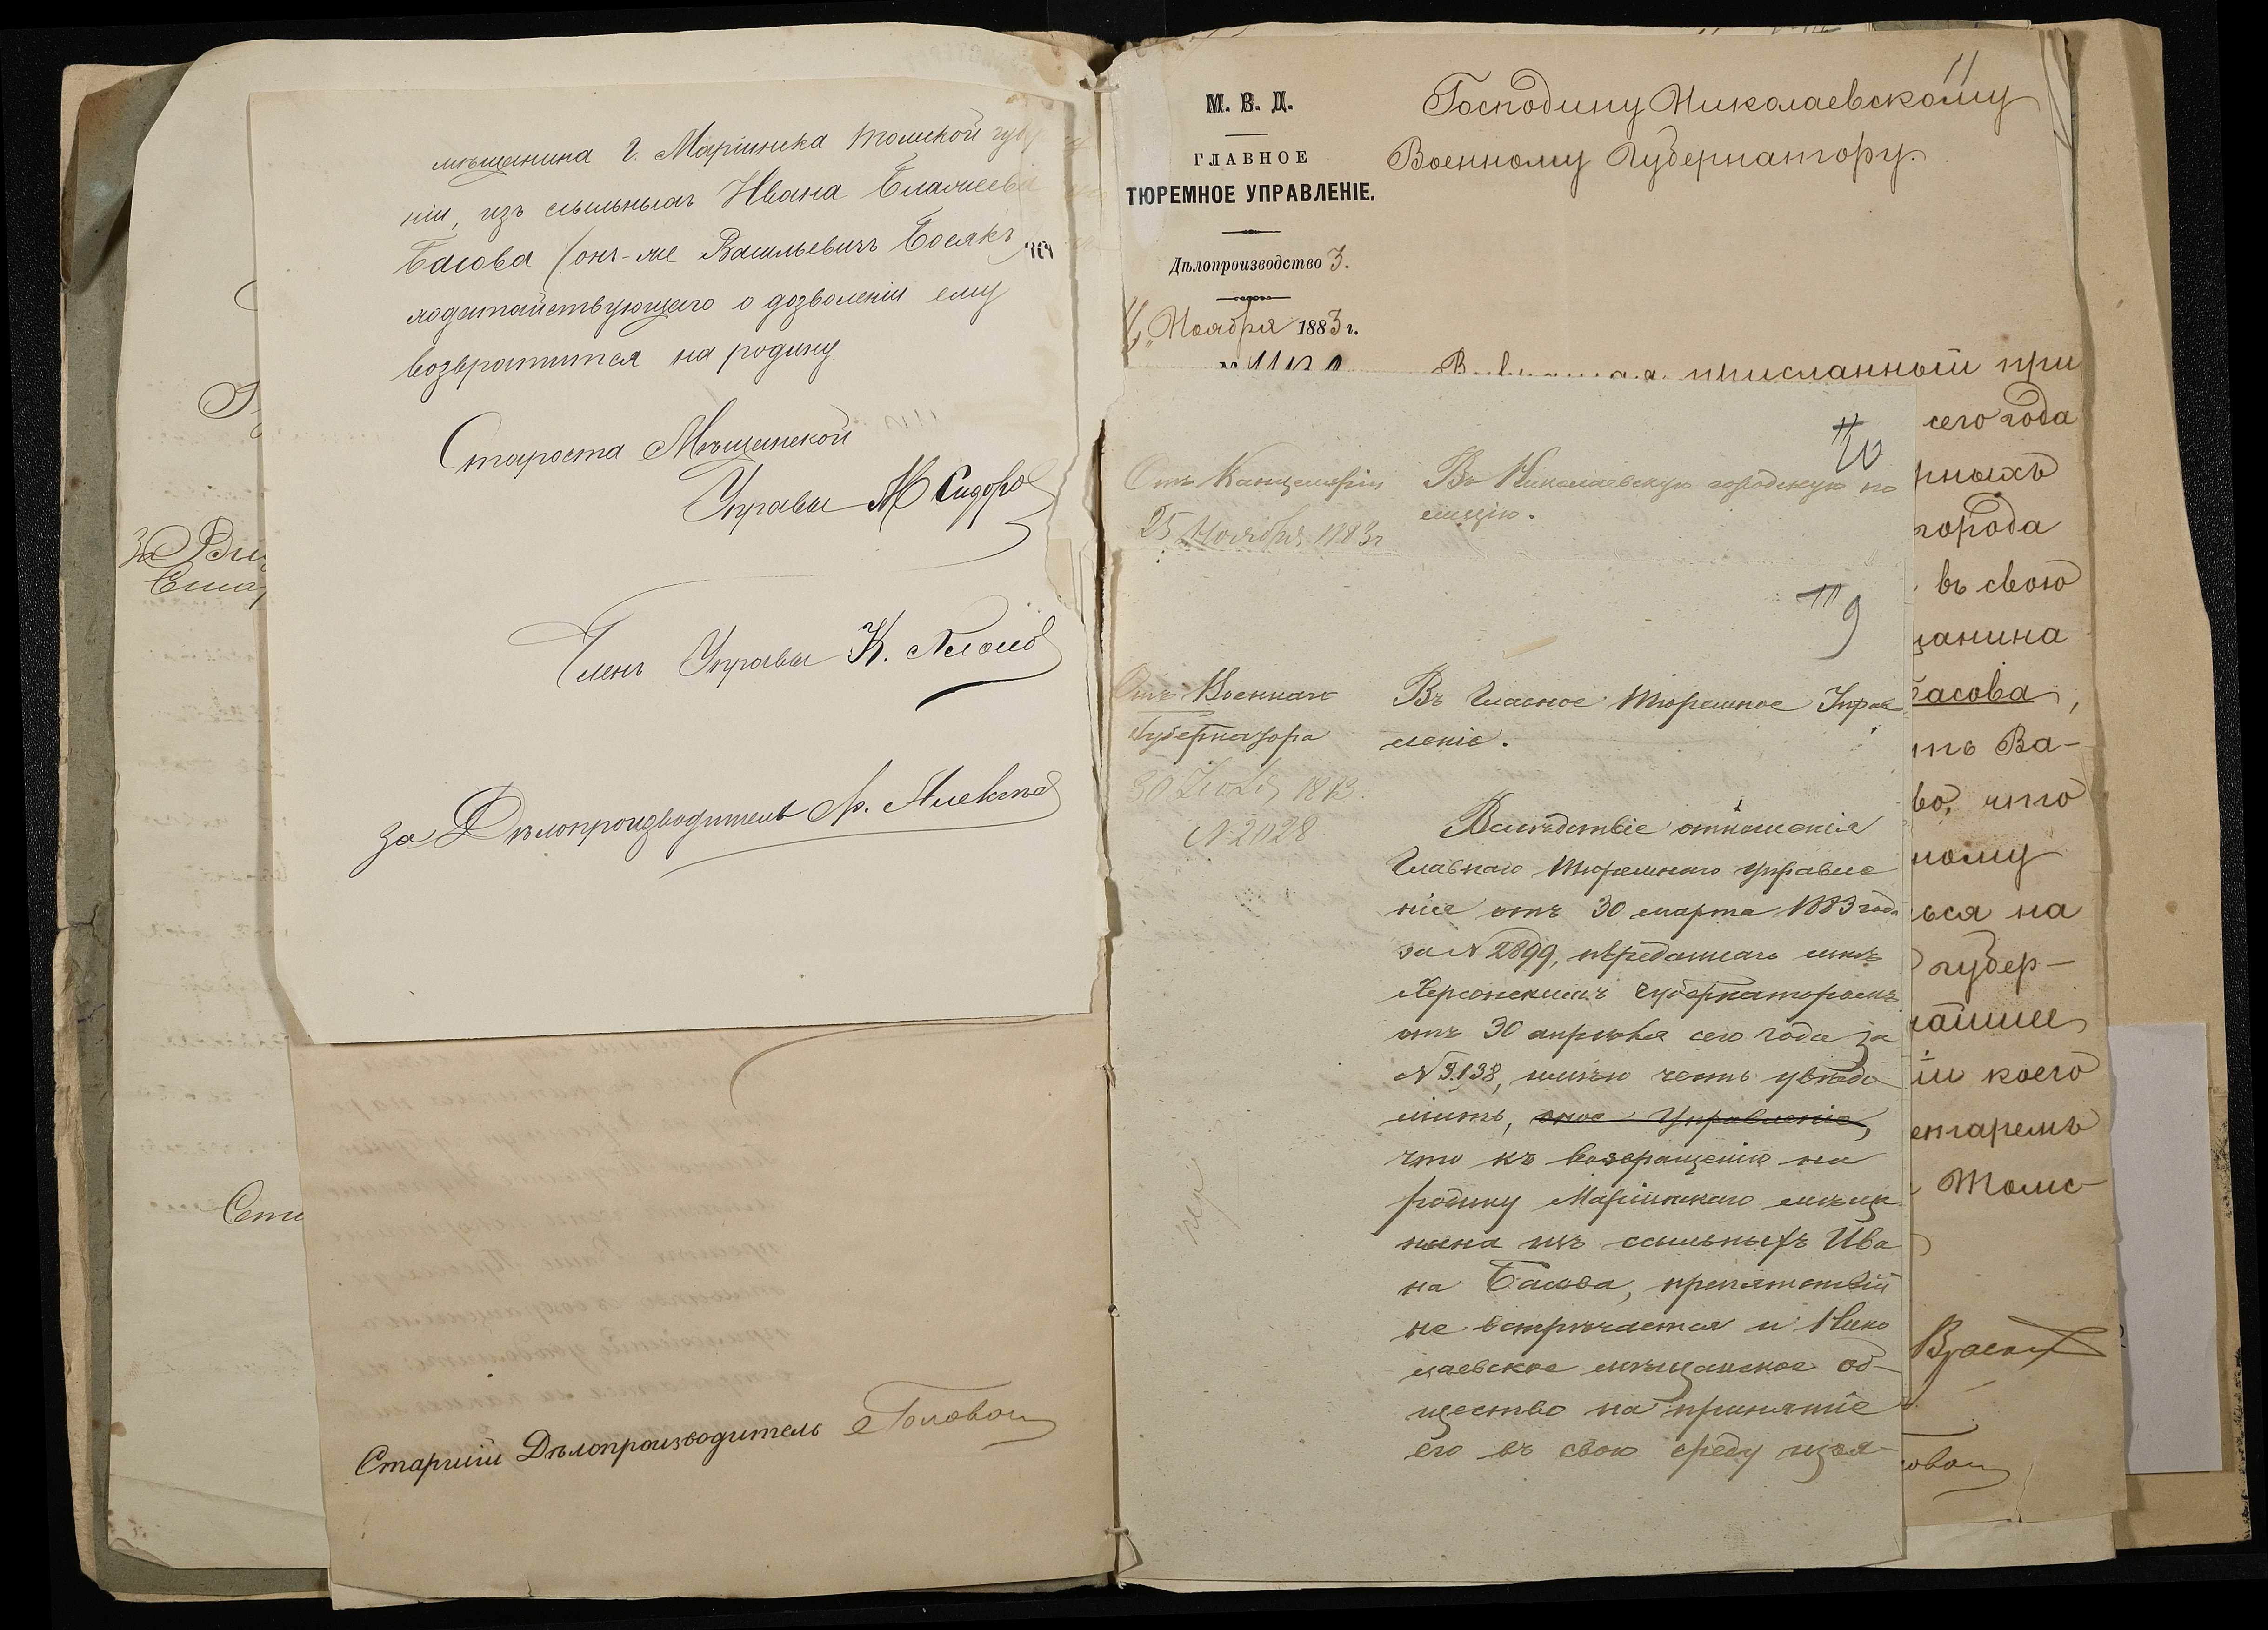 мѣщанина г. Маріинска Томской губ
ніи, изъ ссыльныхъ Ивана
Басова (онъ-же Васильевичъ Босякъ
ходатайствующаго о дозволеніи ему
возвратится на родину.
Староста Мѣщанской
Управы М Сидоров
Членъ Управы К.
за Дѣлопроизводителя
Старшій Дѣлопроизводитель
М. В. Д.
ГЛАВНОЕ
ТЮРЕМНОЕ УПРАВЛЕНІЕ.
Дѣлопроизводство 3.
Ноября 1883 г.
11
Господину Николаевскому
Военному Губернатору.
присланный при
сего года
рныхъ
города
въ свою
щанина
Басова,
ть Ва-
во, что
ному
ься на
губер-
чайшее
іи коего
ентаремъ
Томс-
10
Отъ Канцеляріи
25 Ноября 1883 г
Въ Николаевскую городскую по
лицію.
9
Отъ Военнаго
Губернатора
30 1883.
N 2028
Въ Главное Тюремное Управ
леніе.
Вслѣдствіе отношенія
Главнаго Тюремнаго Управле
нія отъ 30 марта 1883 года
за N 2899, переданнаго мнѣ
Херсонскимъ Губернаторомъ
отъ 30 апрѣля сего года за
N 3138, имѣю честь увѣдо
мить, оное Управленіе,
что къ возвращенію на
родину Маріинскаго мѣща
нина изъ ссыльныхъ Ива
на Басова, препятствій
не встрѣчается и Нико
лаевское мѣщанское об-
щество на принятіе
его въ свою среду изъя-